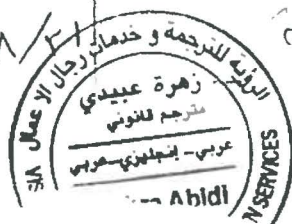 الرؤية للترجمة و خدمات رجال الاعمال
زهرة عبيدي
مترجم قانوني
عربي - إنجليزي - عربي
Abidi
SERVICES